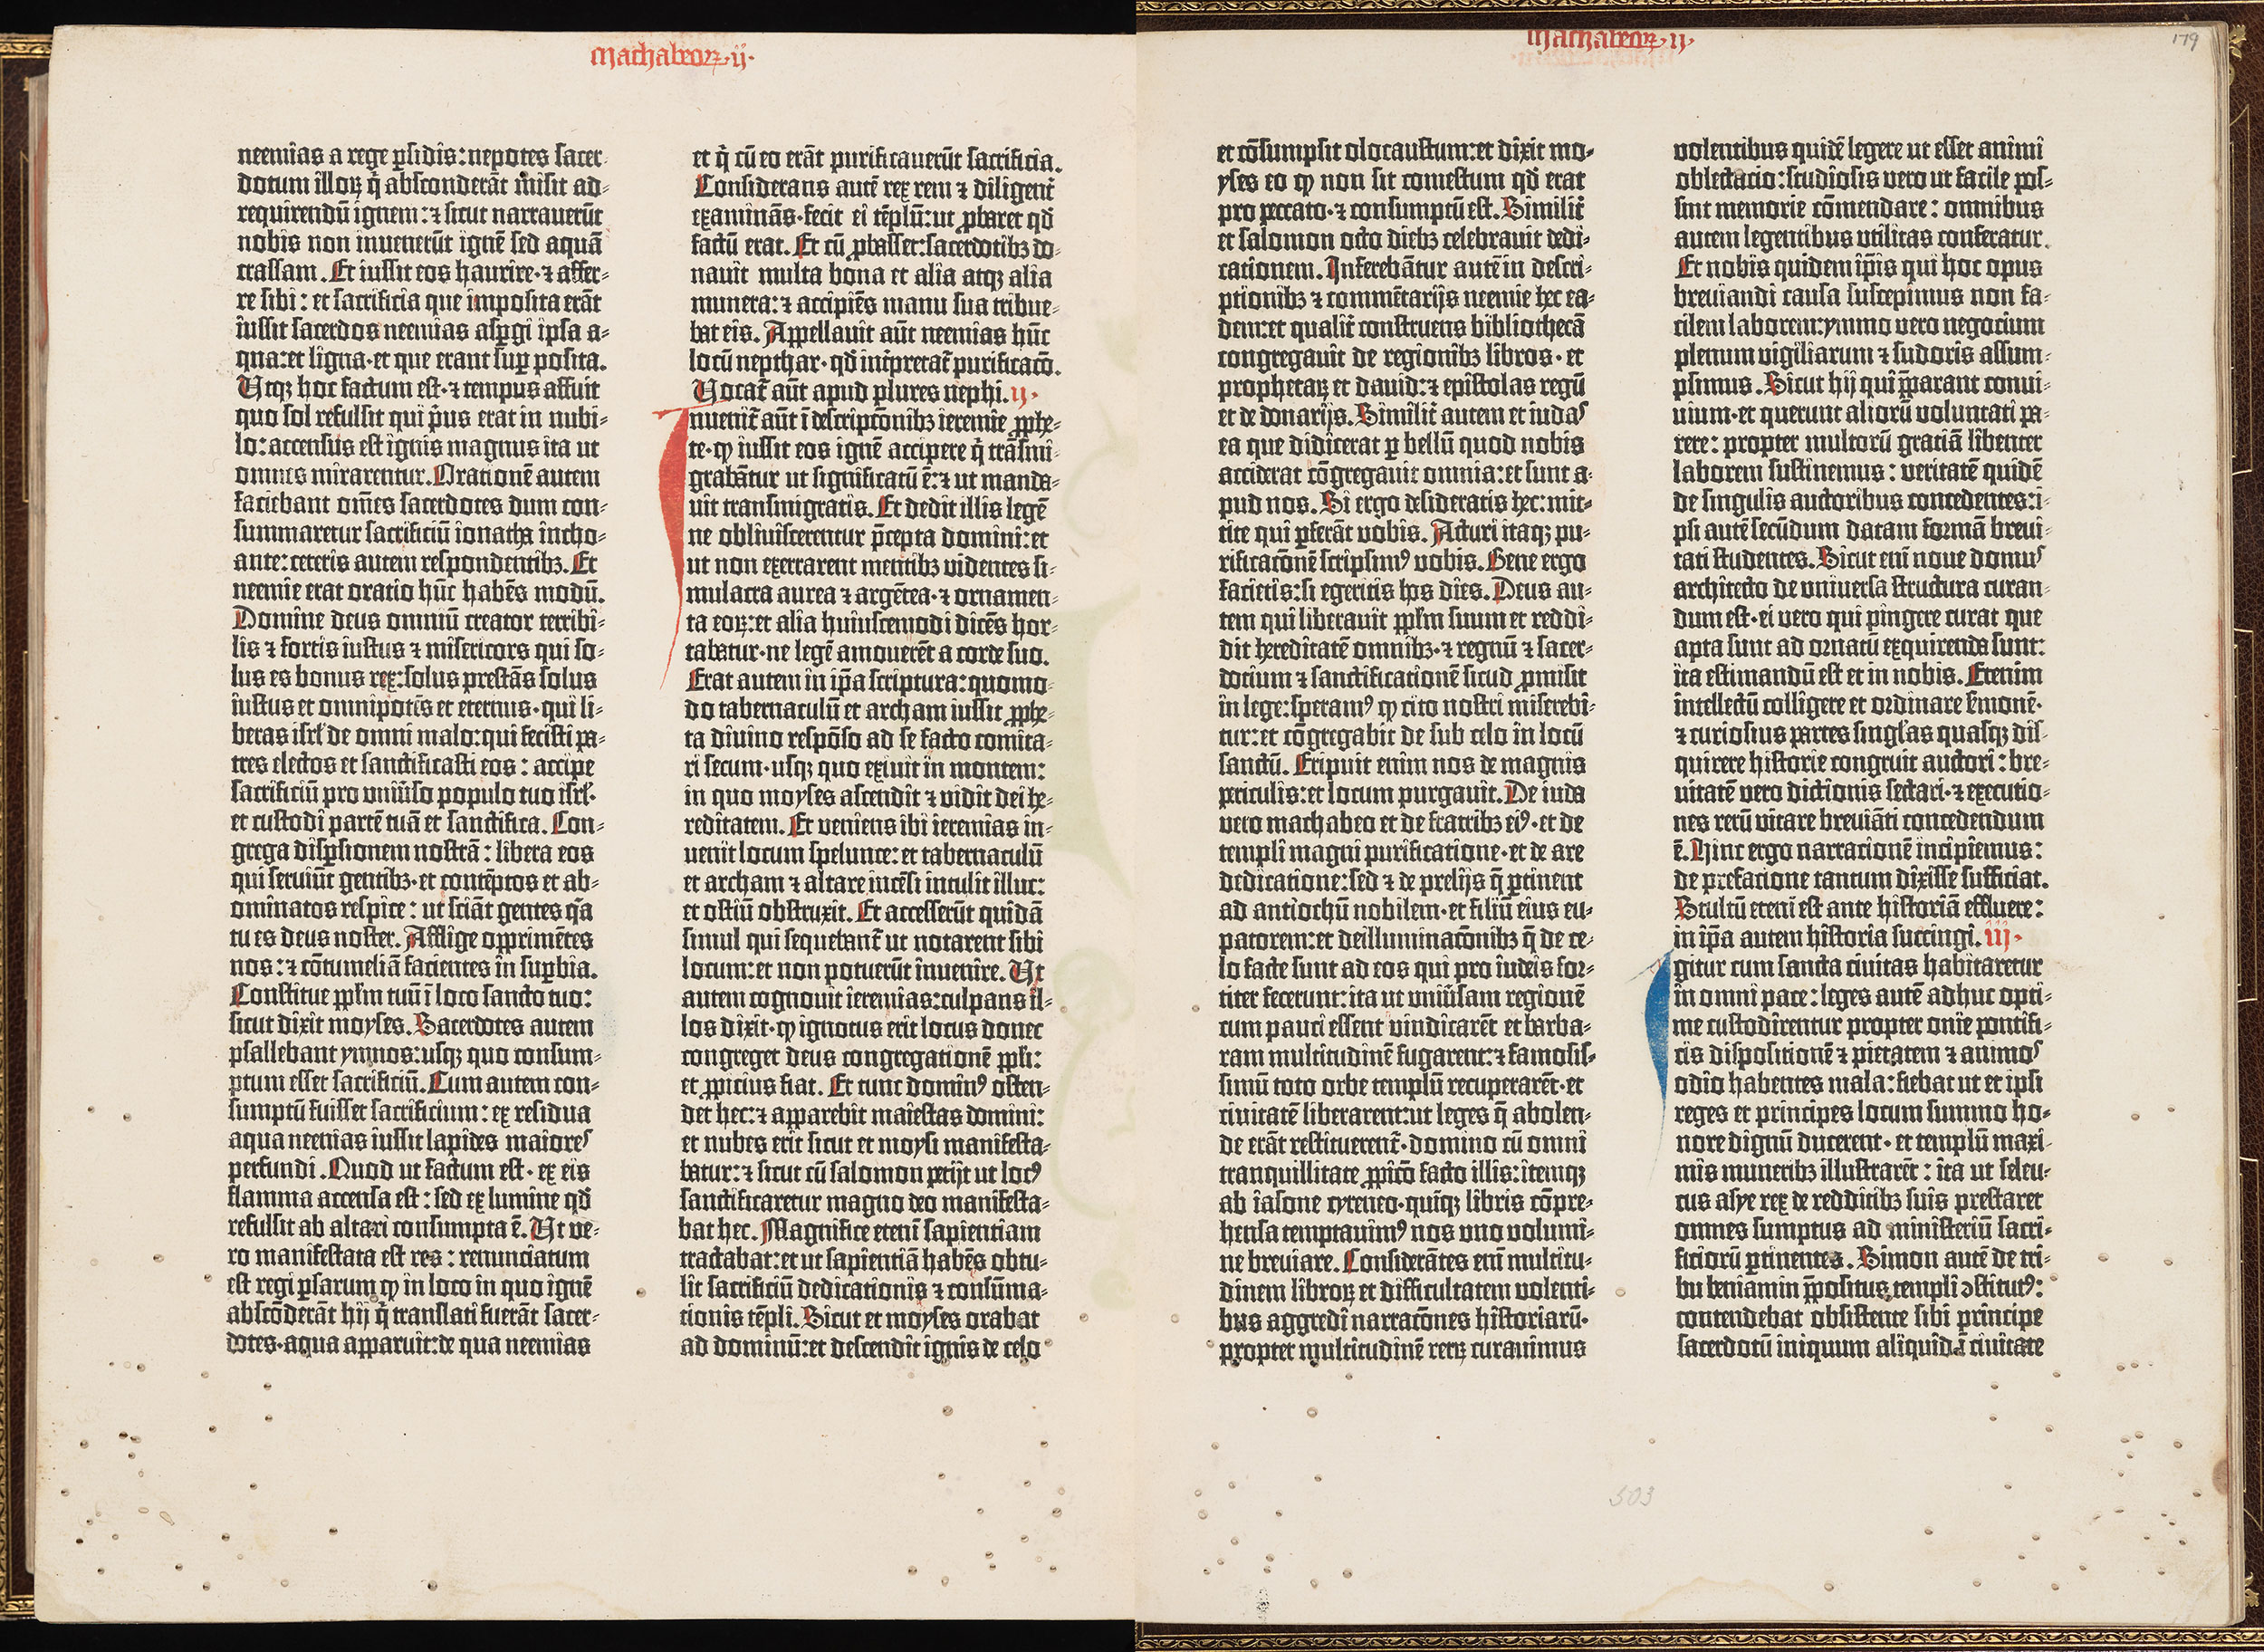 Machabeoꝝ·ij·
neemias a rege ꝑsidis: nepotes sacer-
dotum illoꝝ q̇ absconderāt misit ad-
requirendū ignem: ⁊ sicut narrauerūt
nobis non inuenerūt ignē sed aquā
crassam. Et iussit eos haurire·⁊ affer-
re sibi: et sacrificia que imposita erāt
iussit sacerdos neemias asꝑgi ipsa a-
qua: et ligna·et que erant suꝑ posita.
Utqꝫ hoc factum est·⁊ tempus affuit
quo sol refulsit qui pͥus erat in nubi-
lo: accensus est ignis magnus ita ut
omnes mirarentur. Orationē autem
faciebant om̄es sacerdotes dum con-
summaretur sacrificiū ionatha incho-
ante: ceteris autem respondentibꝫ. Et
neemie erat oratio hūc habēs modū.
Domine deus omniū creator terribi-
lis ⁊ fortis iustus ⁊ misericors qui so-
lus es bonus rex: solus prestās solus
iustus et omnipotēs et eternus·qui li-
beras isrl' de omni malo: qui fecisti pa-
tres electos et sanctificasti eos: accipe
sacrificiū pro uniūso populo tuo isrl'·
et custodi partē tuā et sanctifica. Con-
grega disꝑsionem nostrā: libera eos
qui seruiūt gentibꝫ·et contēptos et ab-
ominatos respice: ut sciāt gentes qͣa
tu es deus noster. Afflige opprimētes
nos: ⁊ cōtumeliā facientes in suꝑbia.
Constitue pplm tuū ī loco sancto tuo:
sicut dixit moyses. Sacerdotes autem
psallebant ymnos: usqꝫ quo consum-
ptum esset sacrificiū. Cum autem con-
sumptū fuisset sacrificium: ex residua
aqua neemias iussit lapides maiores
perfundi. Quod ut factum est·ex eis
flamma accensa est: sed ex lumine qd̄
refulsit ab altari consumpta ē. Ut ve-
ro manifestata est res: renunciatum
est regi ꝑsarum ꝙ in loco in quo ignē
abscōderāt hij q̇ translati fuerāt sacer-
dotes·aqua apparuit: de qua neemias
et q̇ cū eo erāt purificauerūt sacrificia.
Considerans autē rex rem ⁊ diligent̄
examinās·fecit ei tēplū: ut ꝓbaret qd̄
factū erat. Et cū ꝓbasset: sacerdotibꝫ do-
nauit multa bona et alia atqꝫ alia
munera: ⁊ accipiēs manu sua tribue-
bat eis. Appellauit aūt neemias hūc
locū nepthar·qd̄ int̄pretat̄ purificacō.
Vocat̄ aūt apud plures nephi. ij·
Inuenit̄ aūt ī descriptōnibꝫ ieremie ꝓphe-
te·ꝙ iussit eos ignē accipere q̇ trāsmi-
grabātur ut significatū ē: ⁊ ut manda-
uit transmigratis. Et dedit illis legē
ne obliuiscerentur p̄cepta domini: et
ut non exerrarent mentibꝫ videntes si-
mulacra aurea ⁊ argētea·⁊ ornamen-
ta eoꝝ: et alia huiuscemodi dicēs hor-
tabatur·ne legē amouerēt a corde suo.
Erat autem in ip̄a scriptura: quomo-
do tabernaculū et archam iussit ꝓphe-
ta diuino respōso ad se facto comita-
ri secum·usqꝫ quo exiuit in montem:
in quo moyses ascendit ⁊ vidit dei he-
reditatem. Et veniens ibi ieremias in-
uenit locum spelunce: et tabernaculū
et archam ⁊ altare incēsi intulit illuc:
et ostiū obstruxit. Et accesserūt quidā
simul qui sequebant̄ ut notarent sibi
locum: et non potuerūt inuenire. Ut
autem cognouit ieremias: culpans il-
los dixit·ꝙ ignotus erit locus donec
congreget deus congregationē ppli:
et ꝓpicius fiat. Et tunc dominꝰ osten-
det hec: ⁊ apparebit maiestas domini:
et nubes erit sicut et moysi manifesta-
batur: ⁊ sicut cū salomon petijt ut locꝰ
sanctificaretur magno deo manifesta-
bat hec. Magnifice eteni sapientiam
tractabat: et ut sapientiā habēs obtu-
lit sacrificiū dedicationis ⁊ consūma-
tionis tēpli. Sicut et moyses orabat
ad dominū: et descendit ignis de celo
Machabeoꝝ·ij·
179
et cōsumpsit olocaustum: et dixit mo-
yses eo ꝙ non sit comestum qd̄ erat
pro peccato·⁊ consumptū est. Similit̄
et salomon octo diebꝫ celebrauit dedi-
cationem. Inferebātur autē in descri-
ptionibꝫ ⁊ commētarijs neemie hec ea-
dem: et qualit̄ construens bibliothecā
congregauit de regionibꝫ libros·et
prophetaꝝ et dauid: ⁊ epistolas regū
et de donarijs. Similit̄ autem et iudas
ea que didicerat ꝑ bellū quod nobis
acciderat cōgregauit omnia: et sunt a-
pud nos. Si ergo desideratis hec: mit-
tite qui ꝑferāt vobis. Acturi itaqꝫ pu-
rificacōnē scripsimꝰ vobis. Bene ergo
facietis: si egeritis hos dies. Deus au-
tem qui liberauit pplm suum et reddi-
dit hereditatē omnibꝫ·⁊ regnū ⁊ sacer-
docium ⁊ sanctificationē sicud ꝓmisit
in lege: speramꝰ ꝙ cito nostri miserebi-
tur: et cōgregabit de sub celo in locū
sanctū. Eripuit enim nos de magnis
periculis: et locum purgauit. De iuda
vero machabeo et de fratribꝫ eiꝰ·et de
templi magni purificatione·et de are
dedicatione: sed ⁊ de prelijs q̄ ꝑtinent
ad antiochū nobilem·et filiū eius eu-
patorem: et de illuminacōnibꝫ q̄ de ce-
lo facte sunt ad eos qui pro iudeis for-
titer fecerunt: ita ut uniūsam regionē
cum pauci essent vindicarēt et barba-
ram multitudinē fugarent: ⁊ famosis-
simū toto orbe templū recuperarēt·et
ciuitatē liberarent: ut leges q̄ abolen-
de erāt restituerent̄·domino cū omni
tranquillitate ꝓpicō facto illis: itemqꝫ
ab iasone cyreneo·quīqꝫ libris cōpre-
hensa temptauimꝰ nos uno volumi-
ne breuiare. Considerātes eni multitu-
dinem libroꝝ et difficultatem volenti-
bus aggredi narracōnes historiarū·
propter multitudinē reꝝ curauimus
volentibus quidē legere ut esset animi
oblectacio: studiosis vero ut facile pos-
sint memorie cōmendare: omnibus
autem legentibus utilitas conferatur.
Et nobis quidem ip̄is qui hoc opus
breuiandi causa suscepimus non fa-
cilem laborem: ymmo vero negocium
plenum vigiliarum ⁊ sudoris assum-
psimus. Sicut hij qui p̄parant conui-
uium·et querunt aliorū voluntati pa-
rere: propter multorū gratiā libenter
laborem sustinemus: veritatē quidē
de singulis auctoribus concedentes: i-
psi autē secūdum datam formā breui-
tati studentes. Sicut eni noue domus
architecto de uniuersa structura curan-
dum est·ei vero qui pingere curat que
apta sunt ad ornatū exquirenda sunt:
ita estimandū est et in nobis. Etenim
intellectū colligere et ordinare s̄monē·
⁊ curiosius partes singl'as quasqꝫ dis-
quirere historie congruit auctori: bre-
uitatē vero dictionis sectari·⁊ executio-
nes rerū vitare breuiāti concedendum
ē. Hinc ergo narracionē incipiemus:
de prefacione tantum dixisse sufficiat.
Stultū eteni est ante historiā effluere:
in ip̄a autem historia succingi. iij·
Igitur cum sancta ciuitas habitaretur
in omni pace: leges autē adhuc opti-
me custodirentur propter onie pontifi-
cis dispositionē ⁊ pietatem ⁊ animos
odio habentes mala: fiebat ut et ipsi
reges et principes locum summo ho-
nore dignū ducerent·et templū maxi-
mis muneribꝫ illustrarēt: ita ut seleu-
cus asye rex de redditibꝫ suis prestaret
omnes sumptus ad ministeriū sacri-
ficiorū ꝑtinentes. Simon autē de tri-
bu beniamin p̄positus templi ↄstitutꝰ:
contendebat obsistente sibi principe
sacerdotū iniquum aliquid ī ciuitate
503